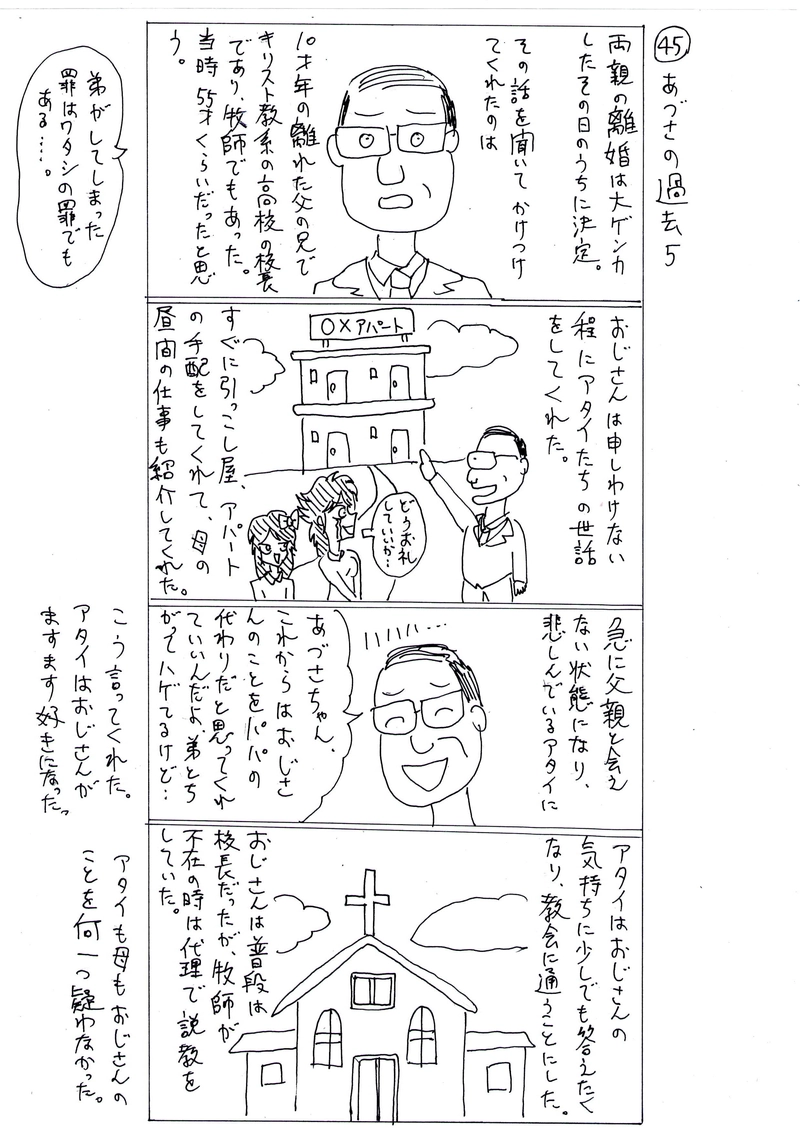 45
あづさの過去5
両親の離婚は大ゲンカ
したその日のうちに決定。
その話を聞いてかけつけ
てくれたのは
10才年の離れた父の兄で
キリスト教系の高校の校長
であり、牧師でもあった。
当時55才くらいだったと思
う。
弟がしてしまった
罪はワタシの罪でも
ある…。
おじさんは申しわけない
程にアタイたちの世話
をしてくれた。
○×アパート
どうお礼
していいか…
すぐに引っこし屋、アパート
の手配をしてくれて、母の
昼間の仕事も紹介してくれた。
急に父親と会え
ない状態になり、
悲しんでいるアタイに
あづさちゃん、
これからはおじさ
んのことをパパの
代わりだと思ってくれ
ていいんだよ、弟とち
がってハゲてるけど…
こう言ってくれた。
アタイはおじさんが
ますます好きになった。
アタイはおじさんの
気持ちに少しでも答えたく
なり、教会に通うことにした。
おじさんは普段は
校長だったが、牧師が
不在の時は代理で説教を
していた。
アタイも母もおじさんの
ことを何一つ疑わなかった。